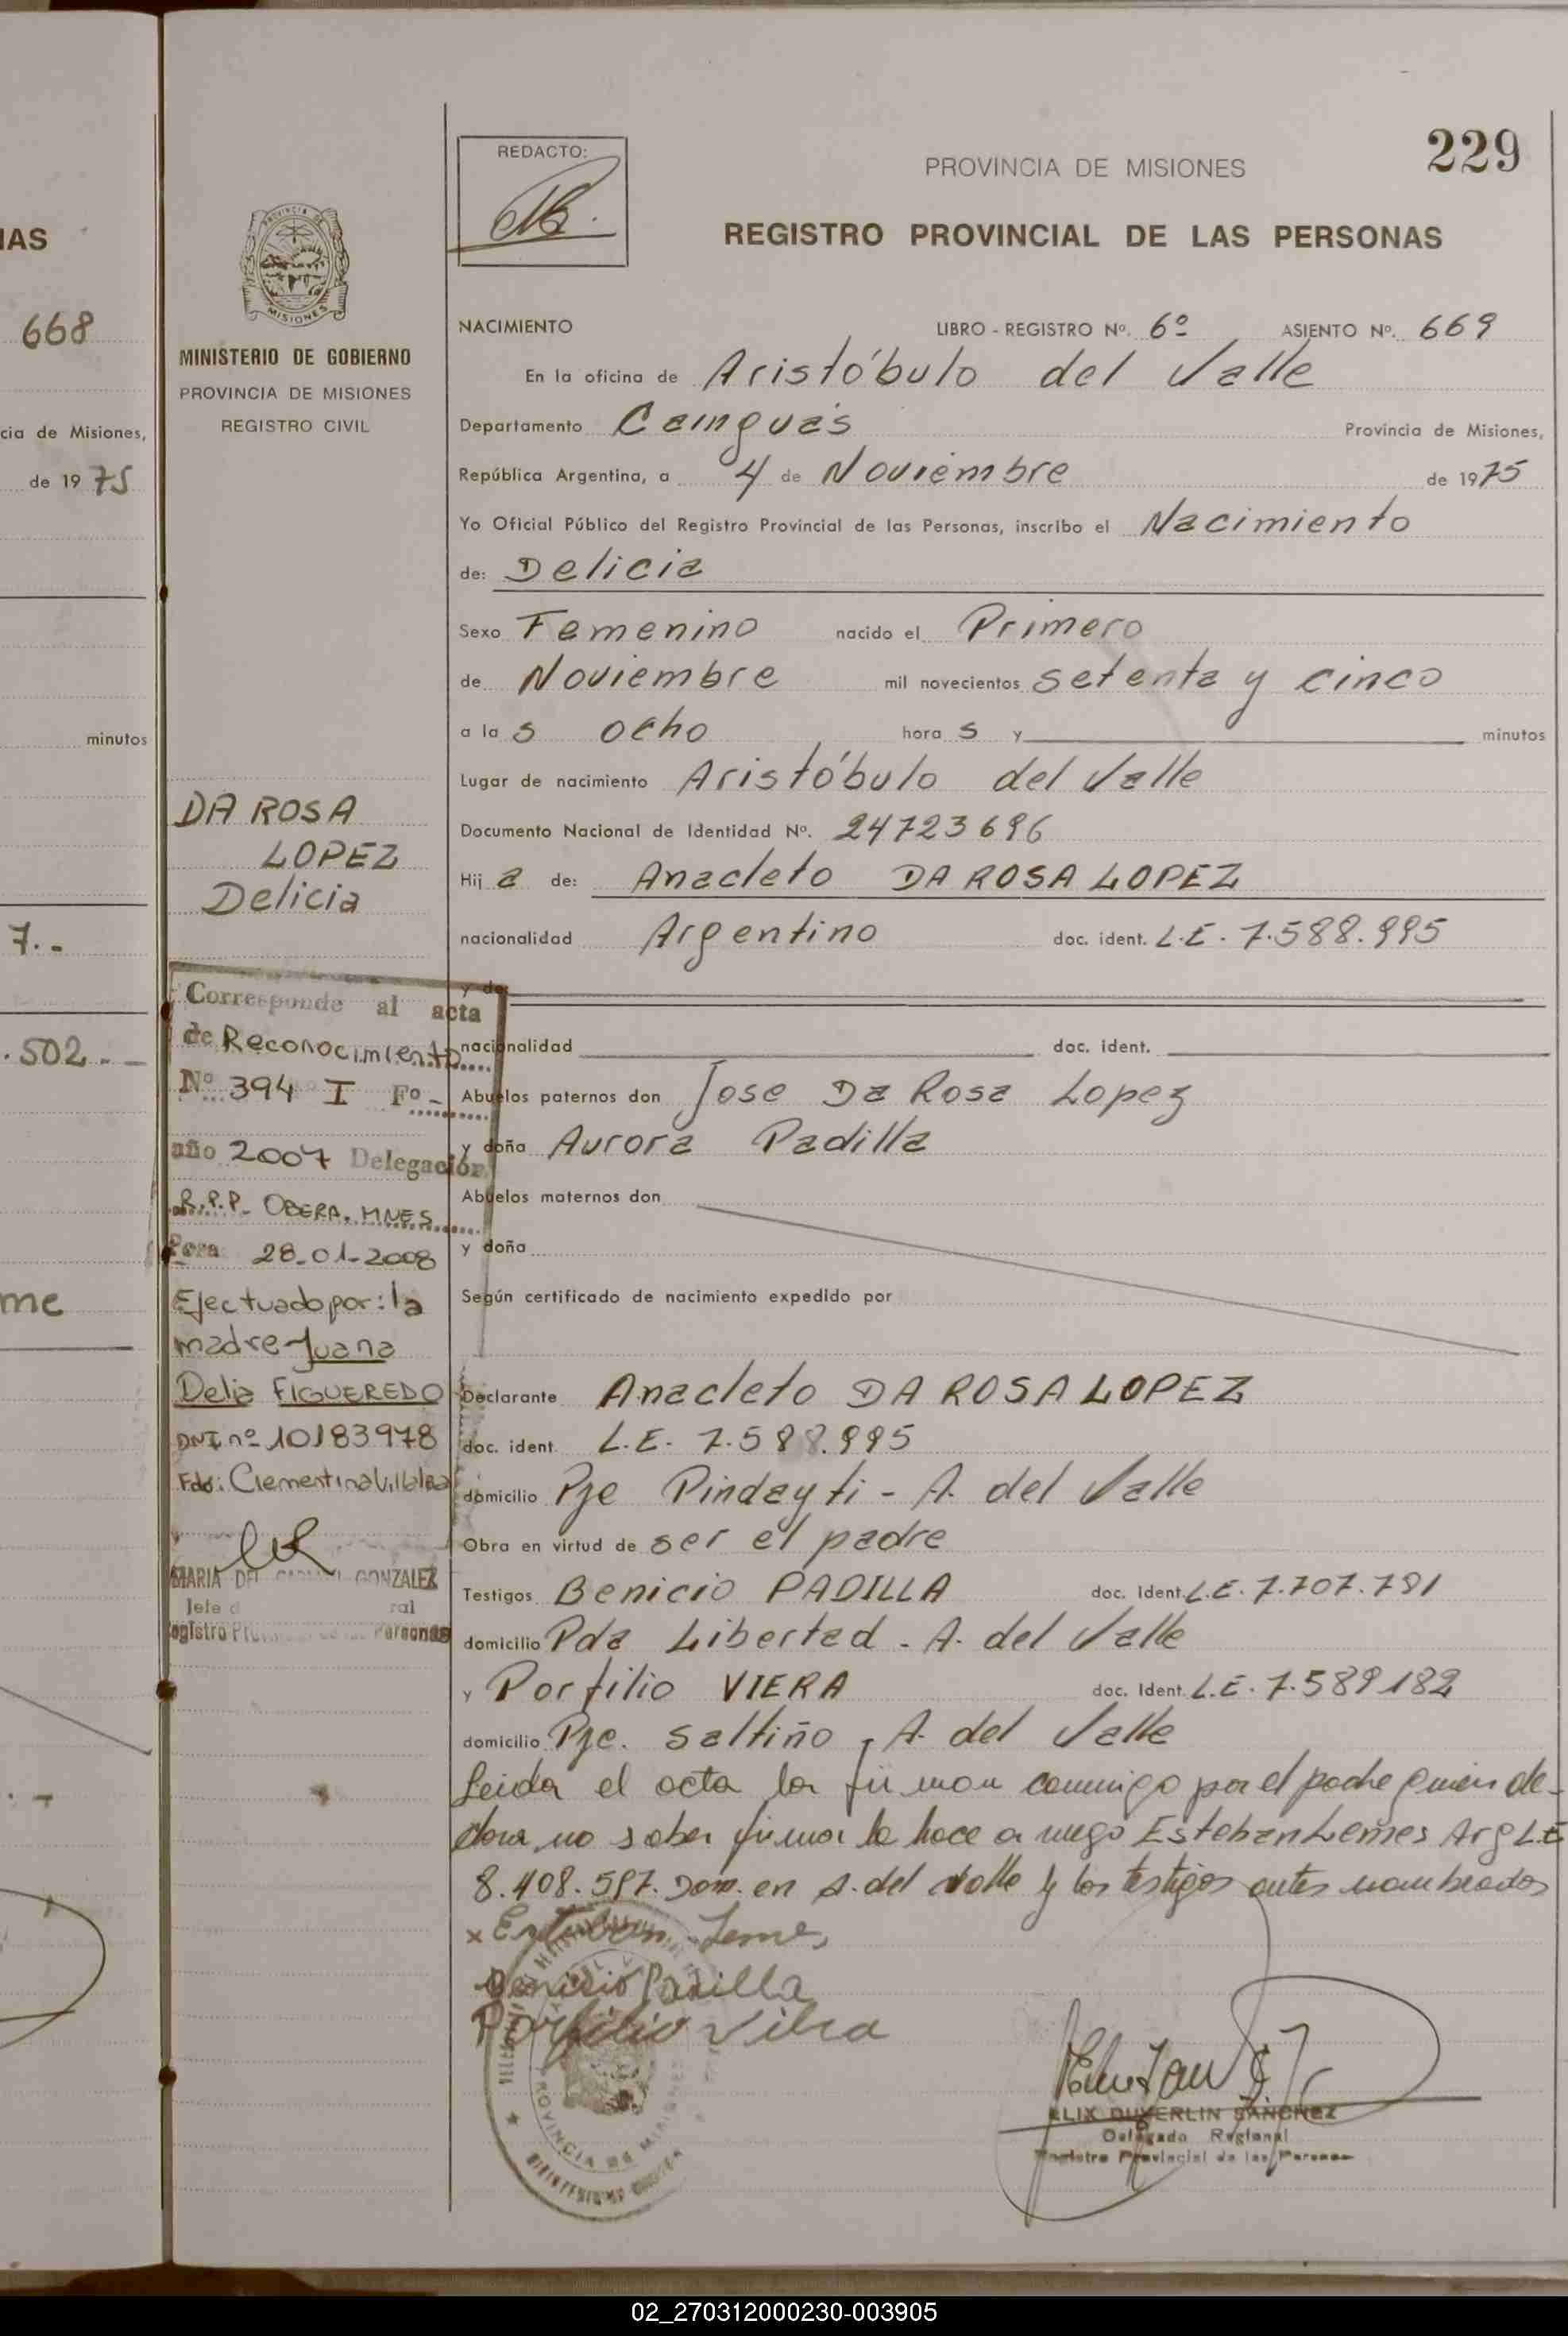 IAS
668
cia de Misiones,
de 19 75
minutos
7.-
.502.-
me
MISIONES
MINISTERIO DE GOBIERNO
PROVINCIA DE MISIONES
REGISTRO CIVIL
DA ROSA
LOPEZ
Delicia
Corresponde al acta
de Reconocimiento
Nº 394 I Fº -
año 2007 Delegación
R.P.P. OBERA. MNES
28-01-2008
Efectuado por: la
madre Juana
Delia FIGUEREDO
DNI nº 10183978
Fdo: Clementina Villalba
MARIA DEL GONZALEZ
REDACTO:
229
PROVINCIA DE MISIONES
REGISTRO PROVINCIAL DE LAS PERSONAS
NACIMIENTO LIBRO - REGISTRO Nº. 6º ASIENTO Nº. 669
En la oficina de Aristóbulo del Valle
Departamento Cainguás Provincia de Misiones,
República Argentina, a 4 de Noviembre de 1975
Yo Oficial Público del Registro Provincial de las Personas, inscribo el Nacimiento
de: Delicia
Sexo Femenino nacido el Primero
de Noviembre mil novecientos setenta y cinco
a la s ocho hora s y minutos
Lugar de nacimiento Aristóbulo del Valle
Documento Nacional de Identidad Nº. 24723696
Hij a de: Anacleto DA ROSA LOPEZ
nacionalidad Argentino doc. ident. L.E. 7.588.995
y de
nacionalidad doc. ident.
Abuelos paternos don Jose Da Rosa Lopez
y doña Aurora Padilla
Abuelos maternos don
y doña
Según certificado de nacimiento expedido por
Declarante Anacleto DA ROSA LOPEZ
doc. ident. L.E. 7.588.995
domicilio Pje Pindayti - A. del Valle
Obra en virtud de ser el padre
Testigos Benicio PADILLA doc. Ident. L.E. 7.707.791
domicilio Pda Libertad - A. del Valle
y Porfilio VIERA doc. Ident. L.E. 7.589.182
domicilio Pje. Saltiño, A. del Valle
Leida el acta la firman conmigo por el padre quien de-
clara no saber firmar lo hace a ruego Esteban Lemes Arg L.E
8.408.597. Dom. en A. del Valle y los testigos antes nombrados
x Esteban Lemes
Benicio Padilla
Porfilio Viera
ELIX DUVERLIN SANCHEZ
Delegado Regional
Registro Provincial de las Personas
02_270312000230-003905